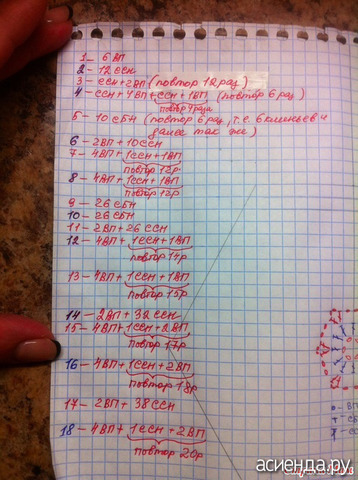 1 – 6 ВП
2 – 12 ССН
3 – ССН + 2ВП (повтор 12 раз)
4 – ССН + 4ВП + ССН + 1ВП (повтор 6 раз)
повтор 4 раза
5 – 10 СБН (повтор 6 раз, т.е. 6 клиньев и
далее так же)
6 – 2ВП + 10 ССН
7 – 4ВП + 1ССН + 1ВП
повтор 12р
8 – 4ВП + 1ССН + 1ВП
повтор 12р
9 – 26 СБН
10 – 26 СБН
11 – 2ВП + 26 ССН
12 – 4ВП + 1ССН + 1ВП
повтор 14р
13 – 4ВП + 1ССН + 1ВП
повтор 15р
14 – 2ВП + 32 ССН
15 – 4ВП + 1ССН + 2ВП
повтор 17р
16 – 4ВП + 1ССН + 2ВП
повтор 18р
17 – 2ВП + 38 ССН
18 – 4ВП + 1ССН + 2ВП
повтор 20р
асиенда.ру